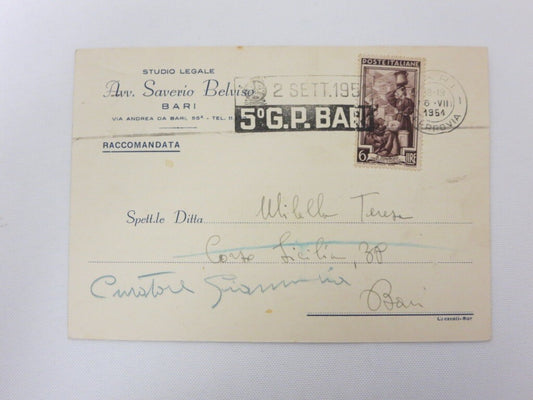 STUDIO LEGALE
Avv. Saverio Belviso
BARI
VIA ANDREA DA BARI, 55ᴬ - TEL.
RACCOMANDATA
2 SETT. 195
5° G.P. BARI
POSTE ITALIANE
6 LIRE
1954
FERROVIA
Spett.le Ditta
Milella Teresa
Corso Sicilia, 38
Curatore
Bari